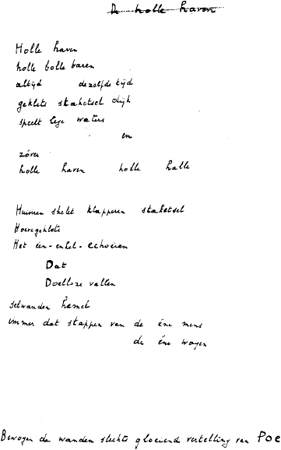 De holle haven
Holle haven
holle bolle baren
altijd dezelfde tijd
geklets staketsel dijk
speelt lege waters
en
zóver
holle haven holle halle
Huizen skelet klapperen staketsel
Hoevegeklots
Het één-enkel-echoeën
Dat
Doelloze vallen
hemel
immer dat stappen van de éne mens
de éne wagen
Bewogen de wanden slechts gloeiend vertelling van Poe